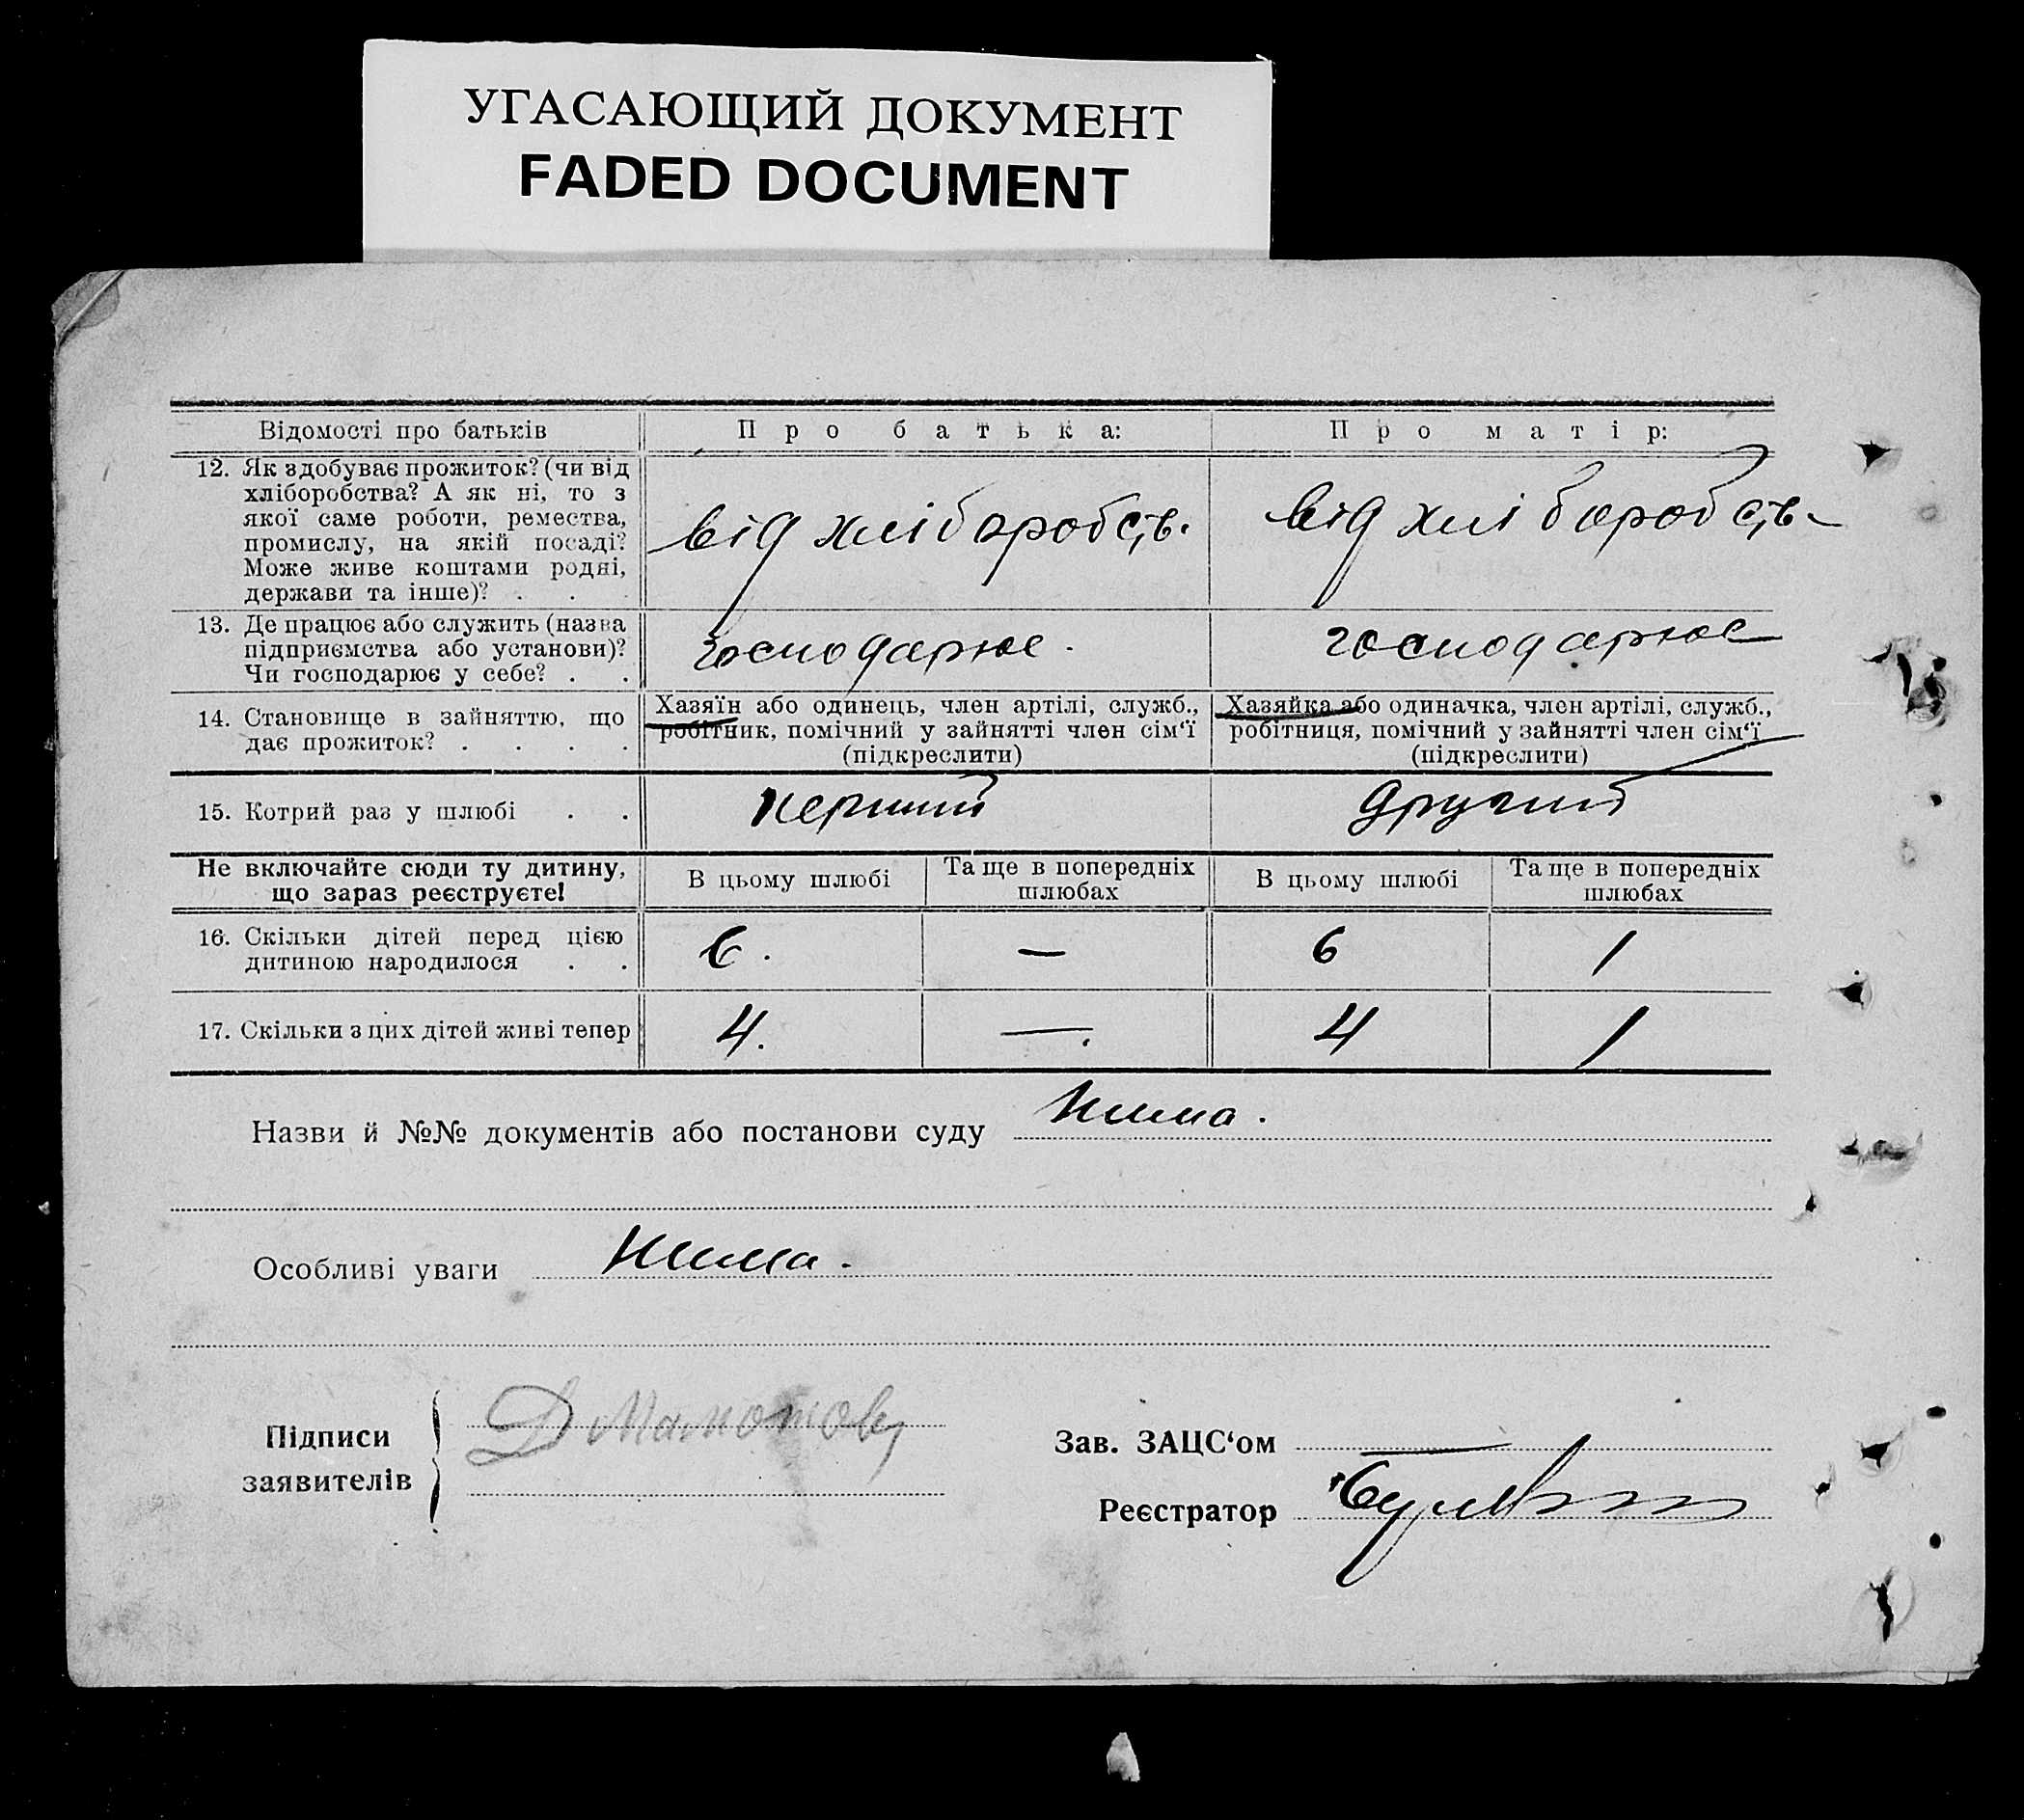 УГАСАЮЩИЙ ДОКУМЕНТ
FADED DOCUMENT
Відомості про батьків
Про батька:
Про матір:
12. Як здобуває прожиток? (чи від
хліборобства? А як ні, то з
якої саме роботи, ремества,
промислу, на якій посаді?
Може живе коштами родні,
держави та інше)? . .
від хліборобств.
від хліборобств.
13. Де працює або служить (назва
підприємства або установи)?
Чи господарює у себе? . .
господарює.
господарює
14. Становище в зайняттю, що
дає прожиток? . . . .
Хазяїн або одинець, член артілі, служб.,
робітник, помічний у зайнятті член сім‘ї
(підкреслити)
Хазяйка або одиначка, член артілі, служб.,
робітниця, помічний у зайнятті член сім‘ї
(підкреслити)
15. Котрий раз у шлюбі . .
перший
другий
Не включайте сюди ту дитину,
що зараз реєструєте!
В цьому шлюбі
Та ще в попередніх
шлюбах
В цьому шлюбі
Та ще в попередніх
шлюбах
16. Скільки дітей перед цією
дитиною народилося . .
6.
—
6
1
17. Скільки з цих дітей живі тепер
4.
—.
4
1
Назви й №№ документів або постанови суду Нима.
Особливі уваги Нима.
Підписи
заявителів
Зав. ЗАЦС‘ом —
Реєстратор